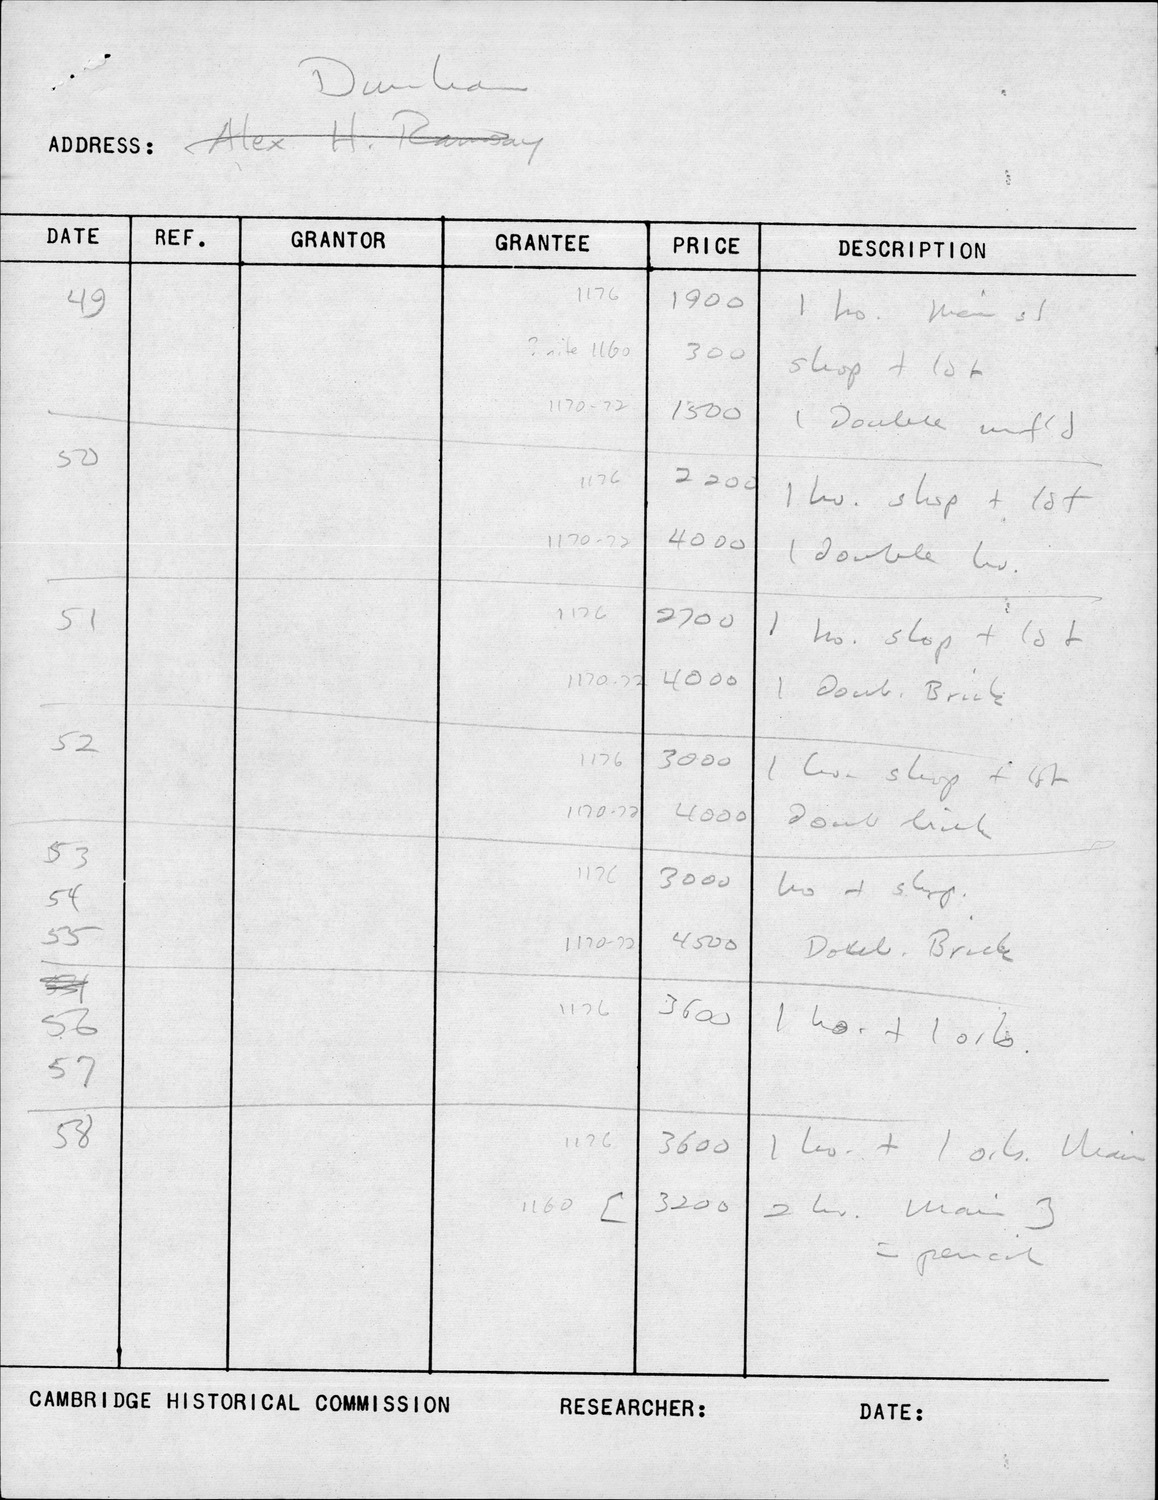 Dunham
ADDRESS: Alex H. Ramsay
DATE REF. GRANTOR GRANTEE PRICE DESCRIPTION
49 1176 1900 1 ho. Main st
1160 300 shop + lot
1170-72 1500 1 Double unf'd
50 1176 2200 1 ho. shop + lot
1170-72 4000 1 double ho.
51 1176 2700 1 ho. shop + lot
1170-72 4000 1 doub. Brick
52 1176 3000 1 ho. shop + lot
1170-72 4000 doub brick
53 1176 3000 ho + shop.
54
55 1170-72 4500 Doub. Brick
56 1176 3600 1 ho. + 1 o.b.
57
58 1176 3600 1 ho. + 1 o.b. Main
1160 [ 3200 2 ho. Main ]
= pencil
CAMBRIDGE HISTORICAL COMMISSION RESEARCHER: DATE: